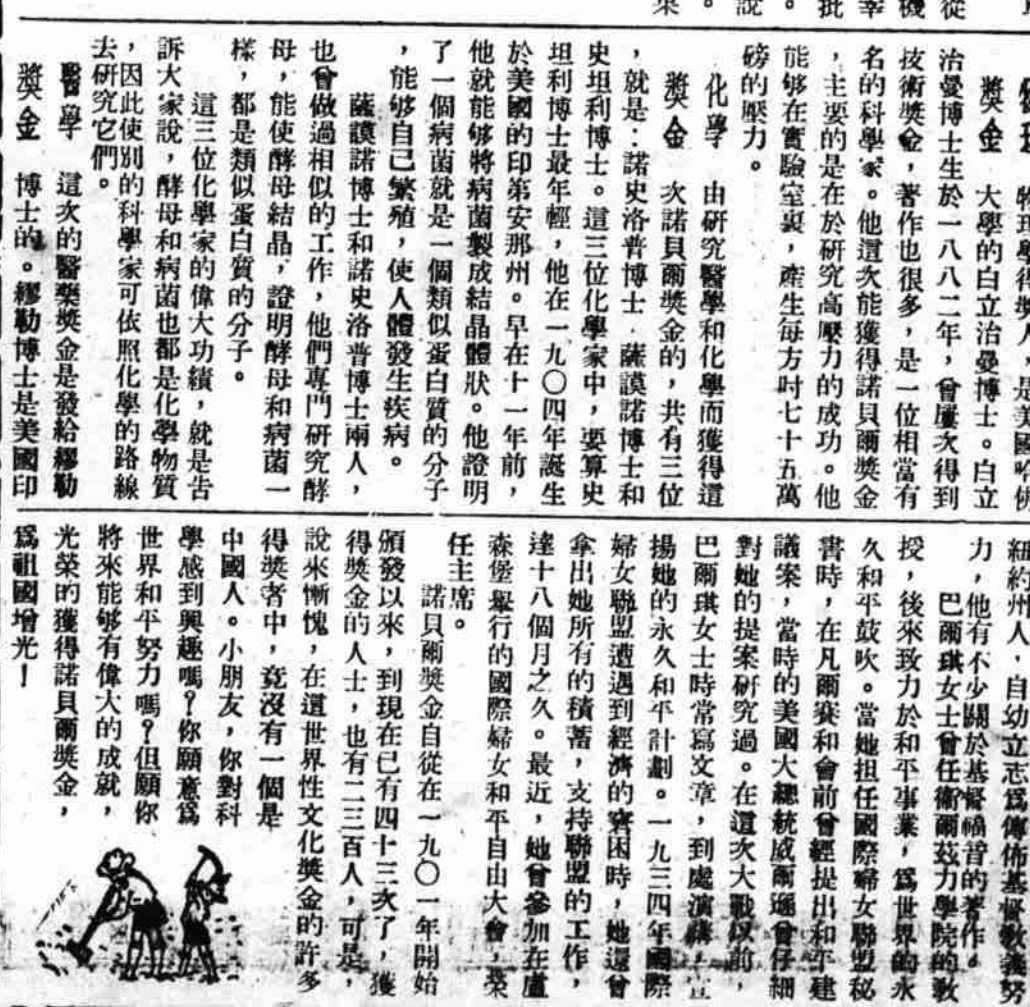 從
機
宰
批
。
說
。
奬金　大學的白立治曼博士。白立
治曼博士生於一八八二年，曾屢次得到
技術奬金，著作也很多，是一位相當有
名的科學家。他這次能獲得諾貝爾奬金
，主要的是在於研究高壓力的成功。他
能够在實驗室裏，產生每方吋七十五萬
磅的壓力。
化學　由研究醫學和化學而獲得這
奬金　次諾貝爾奬金的，共有三位
，就是：諾史洛普博士．薩謨諾博士和
史坦利博士。這三位化學家中，要算史
坦利博士最年輕，他在一九〇四年誕生
於美國的印第安那州。早在十一年前，
他就能够將病菌製成結晶體狀。他證明
了一個病菌就是一個類似蛋白質的分子
，能够自己繁殖，使人體發生疾病。
薩謨諾博士和諾史洛普博士兩人，
也曾做過相似的工作，他們專門研究酵
母，能使酵母結晶，證明酵母和病菌一
樣，都是類似蛋白質的分子。
這三位化學家的偉大功績，就是告
訴大家說，酵母和病菌也都是化學物質
，因此使別的科學家可依照化學的路線
去研究它們。
醫學　這次的醫藥奬金是發給繆勒
奬金　博士的。繆勒博士是美國印
紐約州人．自幼立志爲傳佈基督教義努
力，他有不少關於基督福音的著作。
巴爾琪女士曾任衞爾茲力學院的教
授，後來致力於和平事業，爲世界的永
久和平鼓吹。當她担任國際婦女聯盟秘
書時，在凡爾賽和會前曾經提出和平建
議案，當時的美國大總統威爾遜曾仔細
對她的提案研究過。在這次大戰以前，
巴爾琪女士時常寫文章，到處演講，宣
揚她的永久和平計劃。一九三四年國際
婦女聯盟遭遇到經濟的窘困時，她還曾
拿出她所有的積蓄，支持聯盟的工作，
達十八個月之久。最近，她曾參加在盧
森堡舉行的國際婦女和平自由大會，榮
任主席。
諾貝爾奬金自從在一九〇一年開始
頒發以來，到現在已有四十三次了，獲
得奬金的人士，也有二三百人，可是，
說來慚愧，在這世界性文化奬金的許多
得奬者中，竟沒有一個是
中國人。小朋友，你對科
學感到興趣嗎？你願意爲
世界和平努力嗎？但願你
將來能够有偉大的成就，
光榮的獲得諾貝爾奬金，
爲祖國增光！